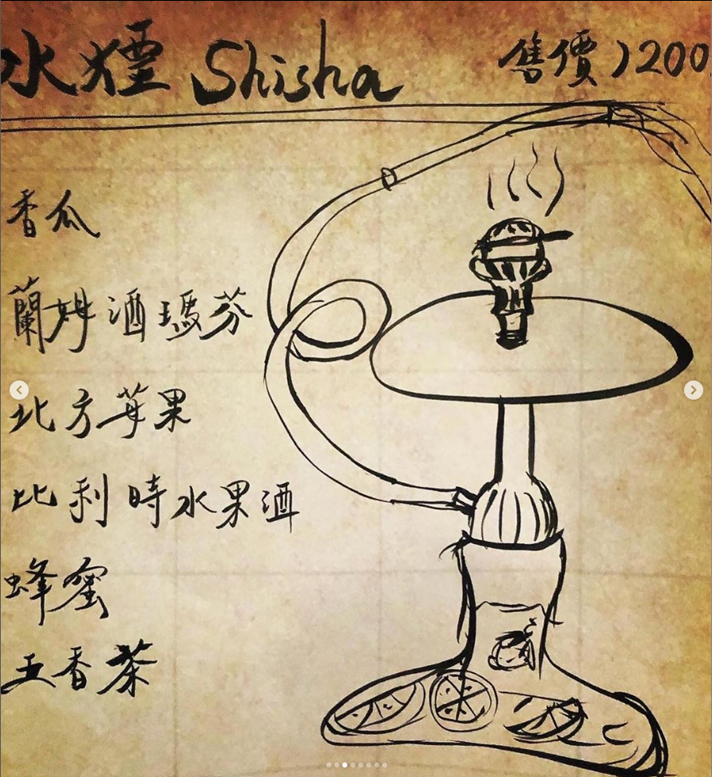 水煙 Shisha 售價1200
香瓜
蘭姆酒瑪芬
北方莓果
比利時水果酒
蜂蜜
五香茶